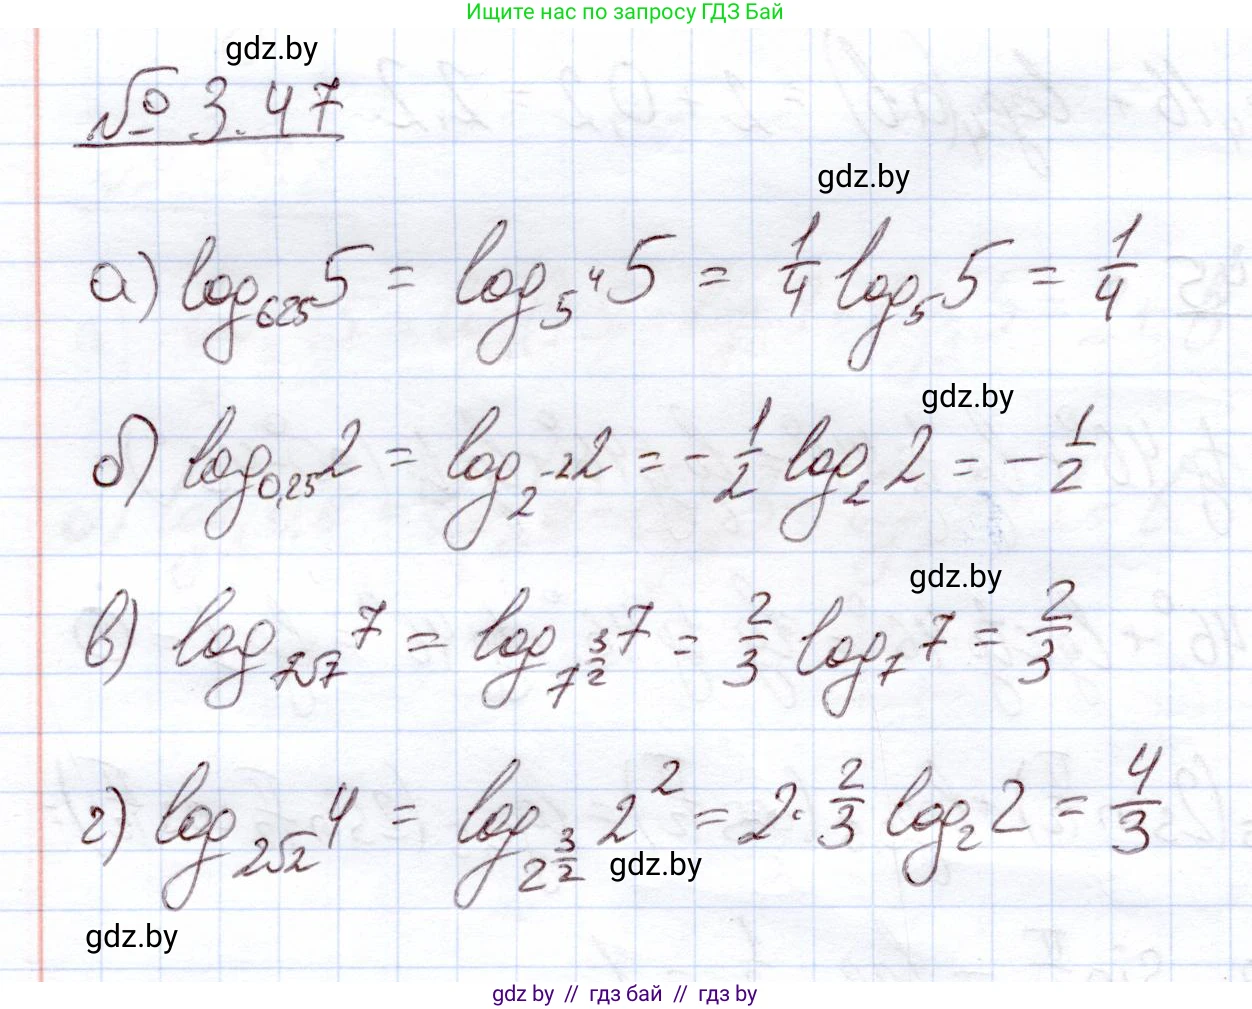 Ищите нас по запросу ГДЗ Бай
gdz.by
№ 3.47
gdz.by
а) log₆₂₅ 5 = log_{5^4} 5 = 1/4 log₅ 5 = 1/4
gdz.by
б) log_{0,25} 2 = log_{2^{-2}} 2 = -1/2 log₂ 2 = -1/2
gdz.by
в) log_{7√7} 7 = log_{7^{3/2}} 7 = 2/3 log₇ 7 = 2/3
г) log_{2√2} 4 = log_{2^{3/2}} 2² = 2·2/3 log₂ 2 = 4/3
gdz.by
gdz.by
gdz by // гдз бай // гдз by